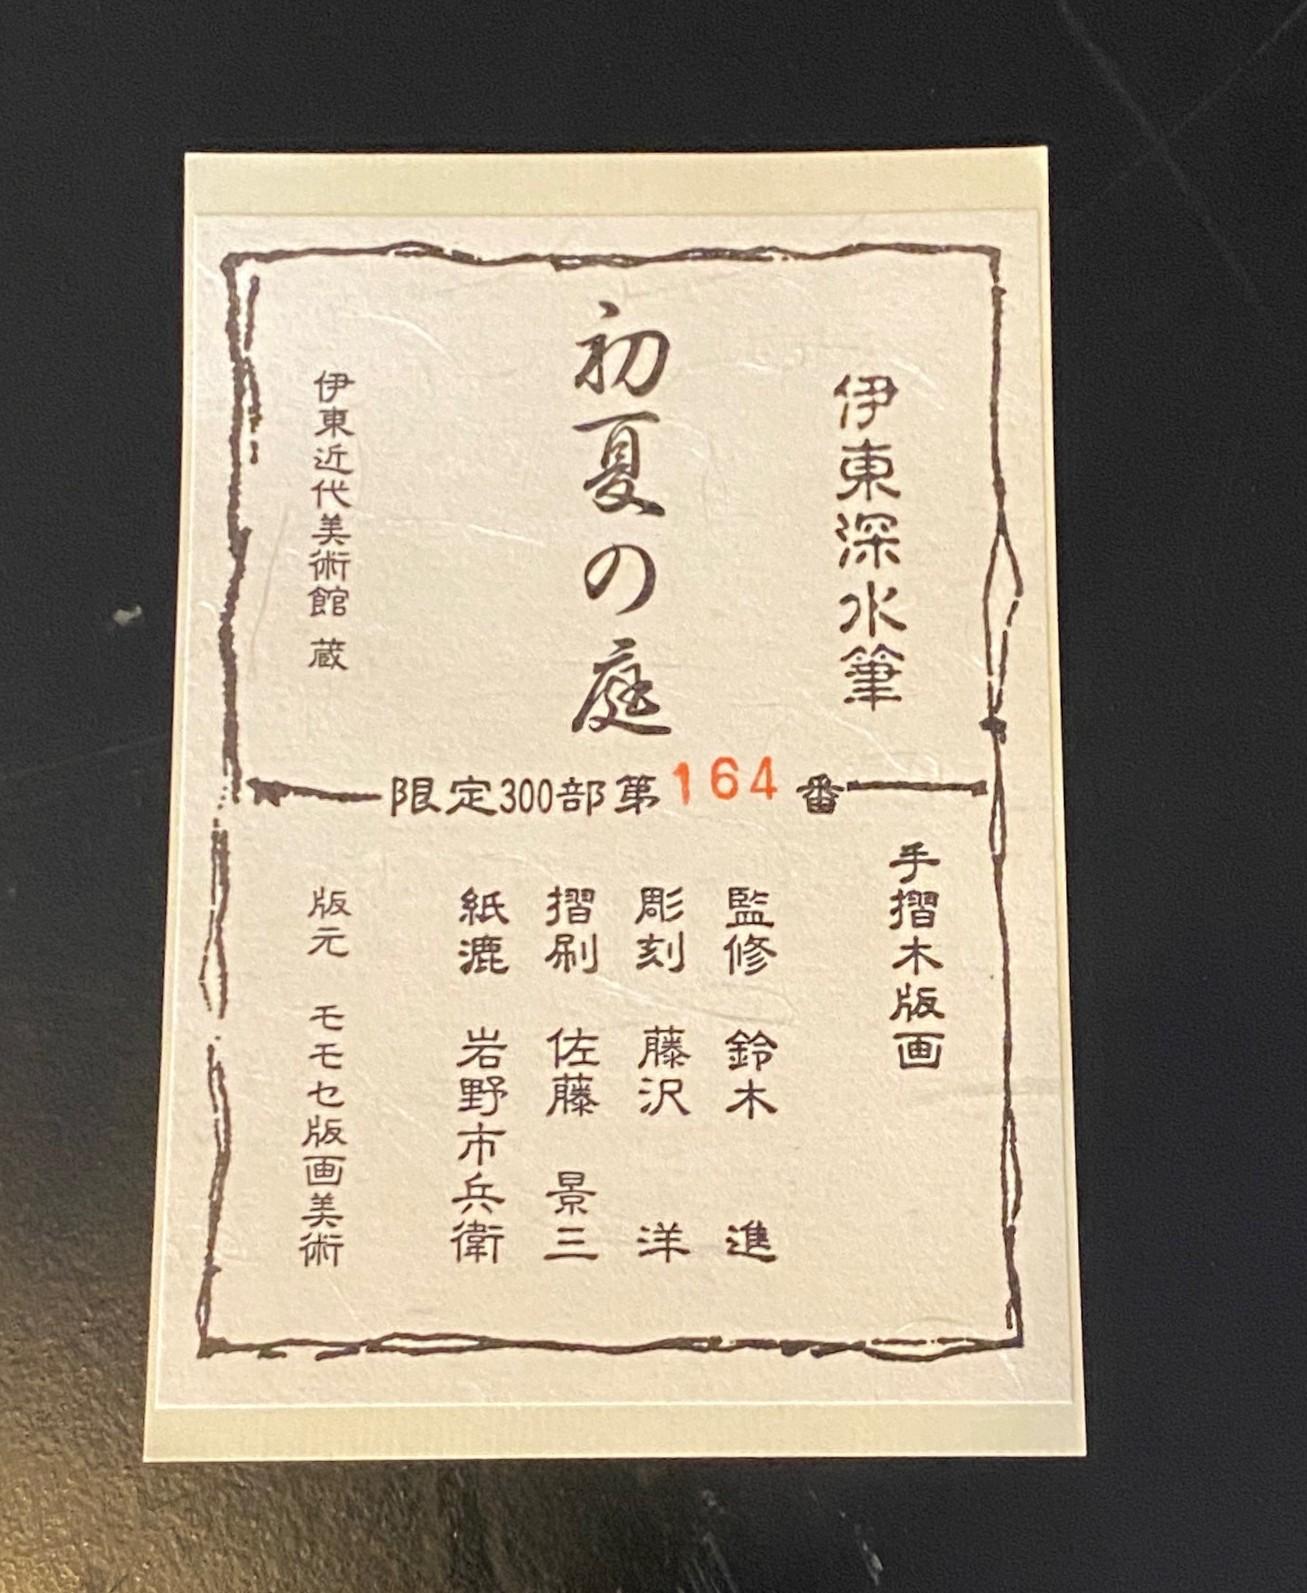 伊東深水筆
初夏の庭
伊東近代美術館 蔵
限定300部第164番
手摺木版画
監修 鈴木 進
彫刻 藤沢 洋
摺刷 佐藤 景三
紙漉 岩野市兵衛
版元 モモセ版画美術